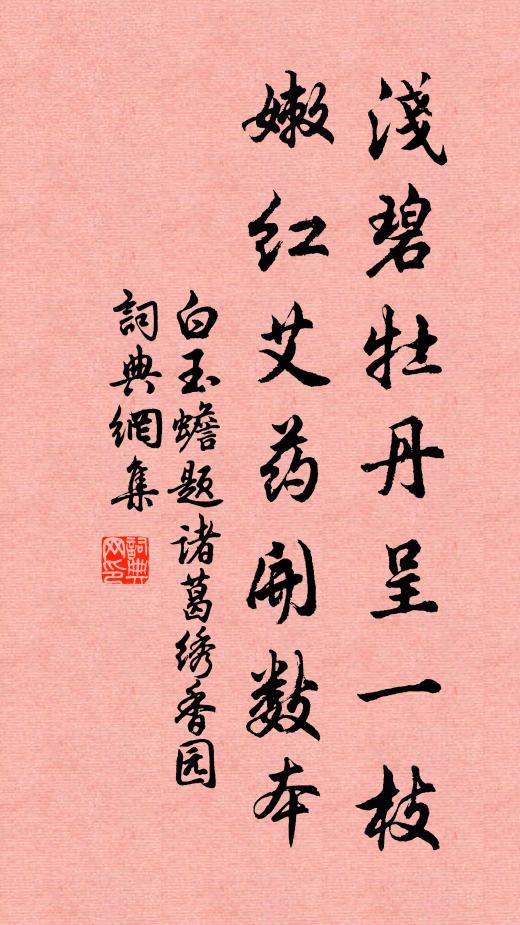 淺碧牡丹呈一枝
嫩红艾药開数本
白玉蟾题诸葛绣香园
詞典網集
詞典網印